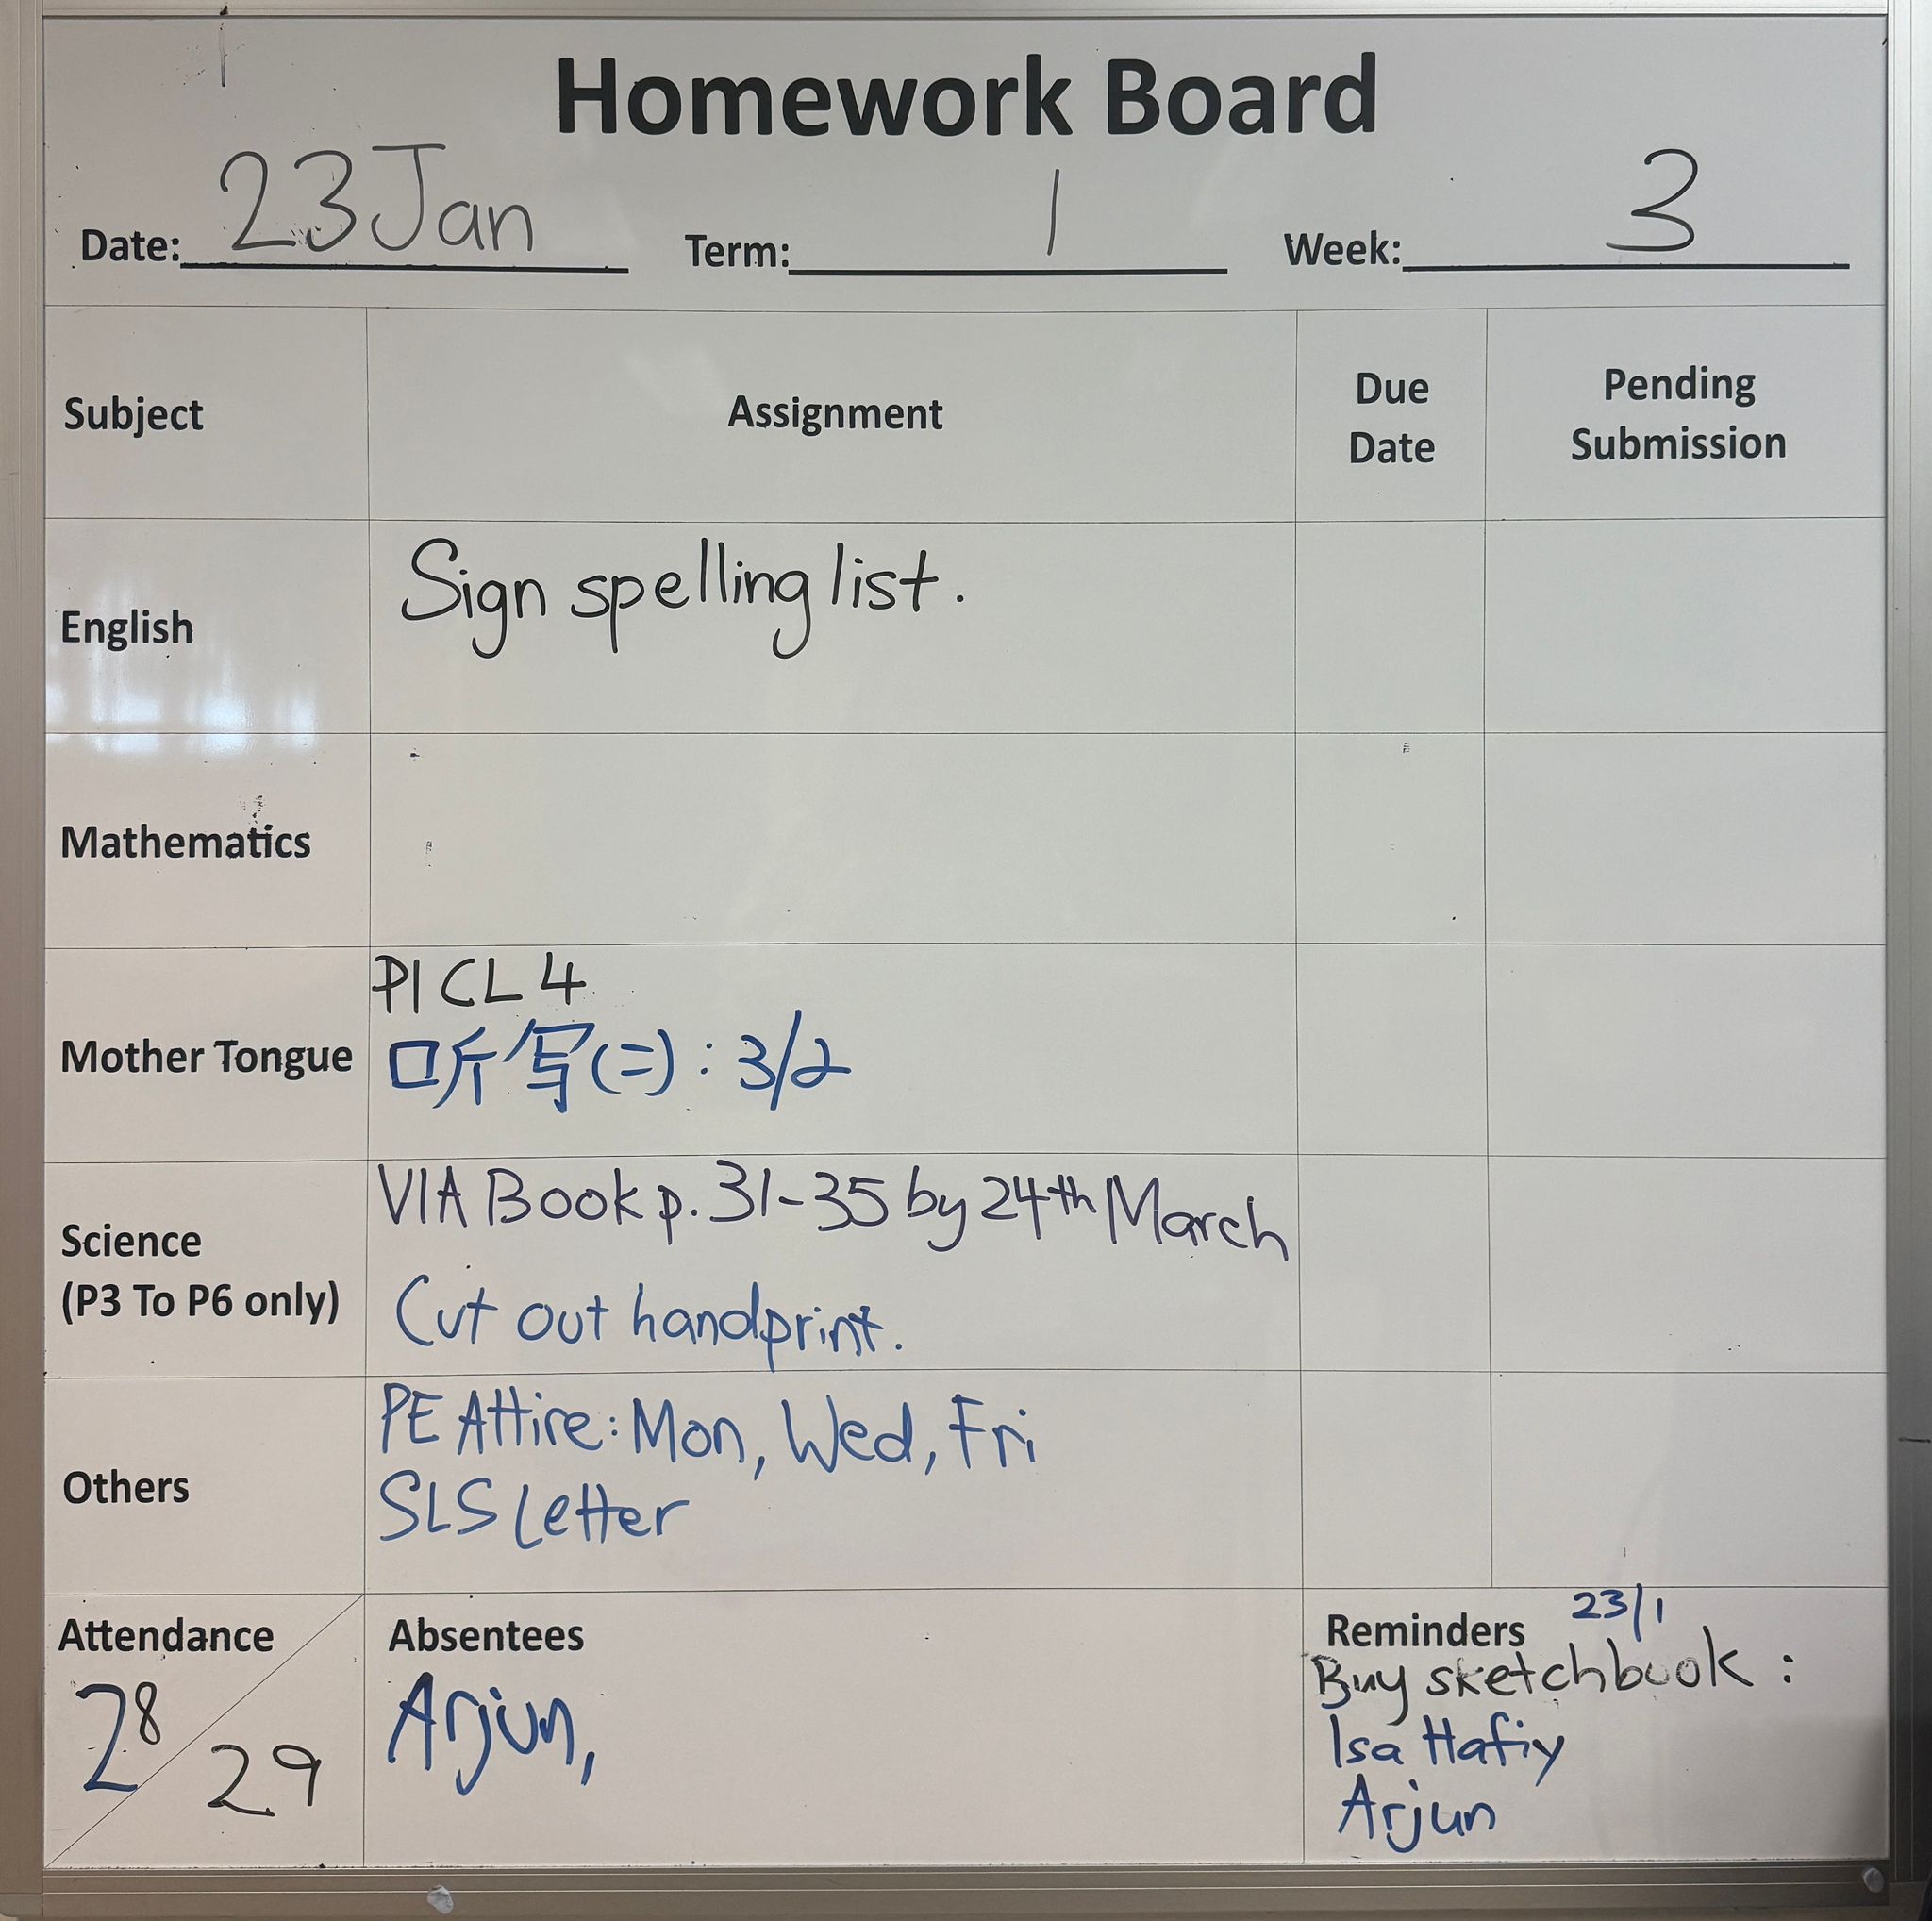 Homework Board
Date: 23 Jan Term: 1 Week: 3
Subject Assignment Due Date Pending Submission
English Sign spelling list.
Mathematics
Mother Tongue
P1 CL 4
听写(二): 3/2
Science
(P3 To P6 only)
VIA Book p. 31-35 by 24th March
Cut out handprint.
Others
PE Attire: Mon, Wed, Fri
SLS Letter
Attendance
28/29
Absentees
Arjun,
Reminders 23/1
Buy sketchbook :
Isa Hafiy
Arjun